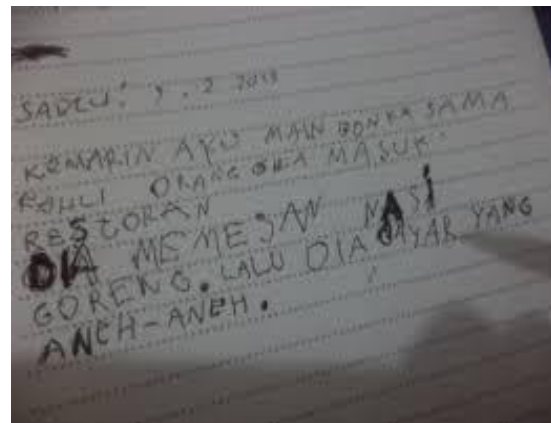 KEMARIN AYU MAIN BONEKA SAMA
ORANG MASUK
RESTORAN
DIA MEMESAN NASI
GORENG. LALU DIA BAYAR YANG
ANEH-ANEH.